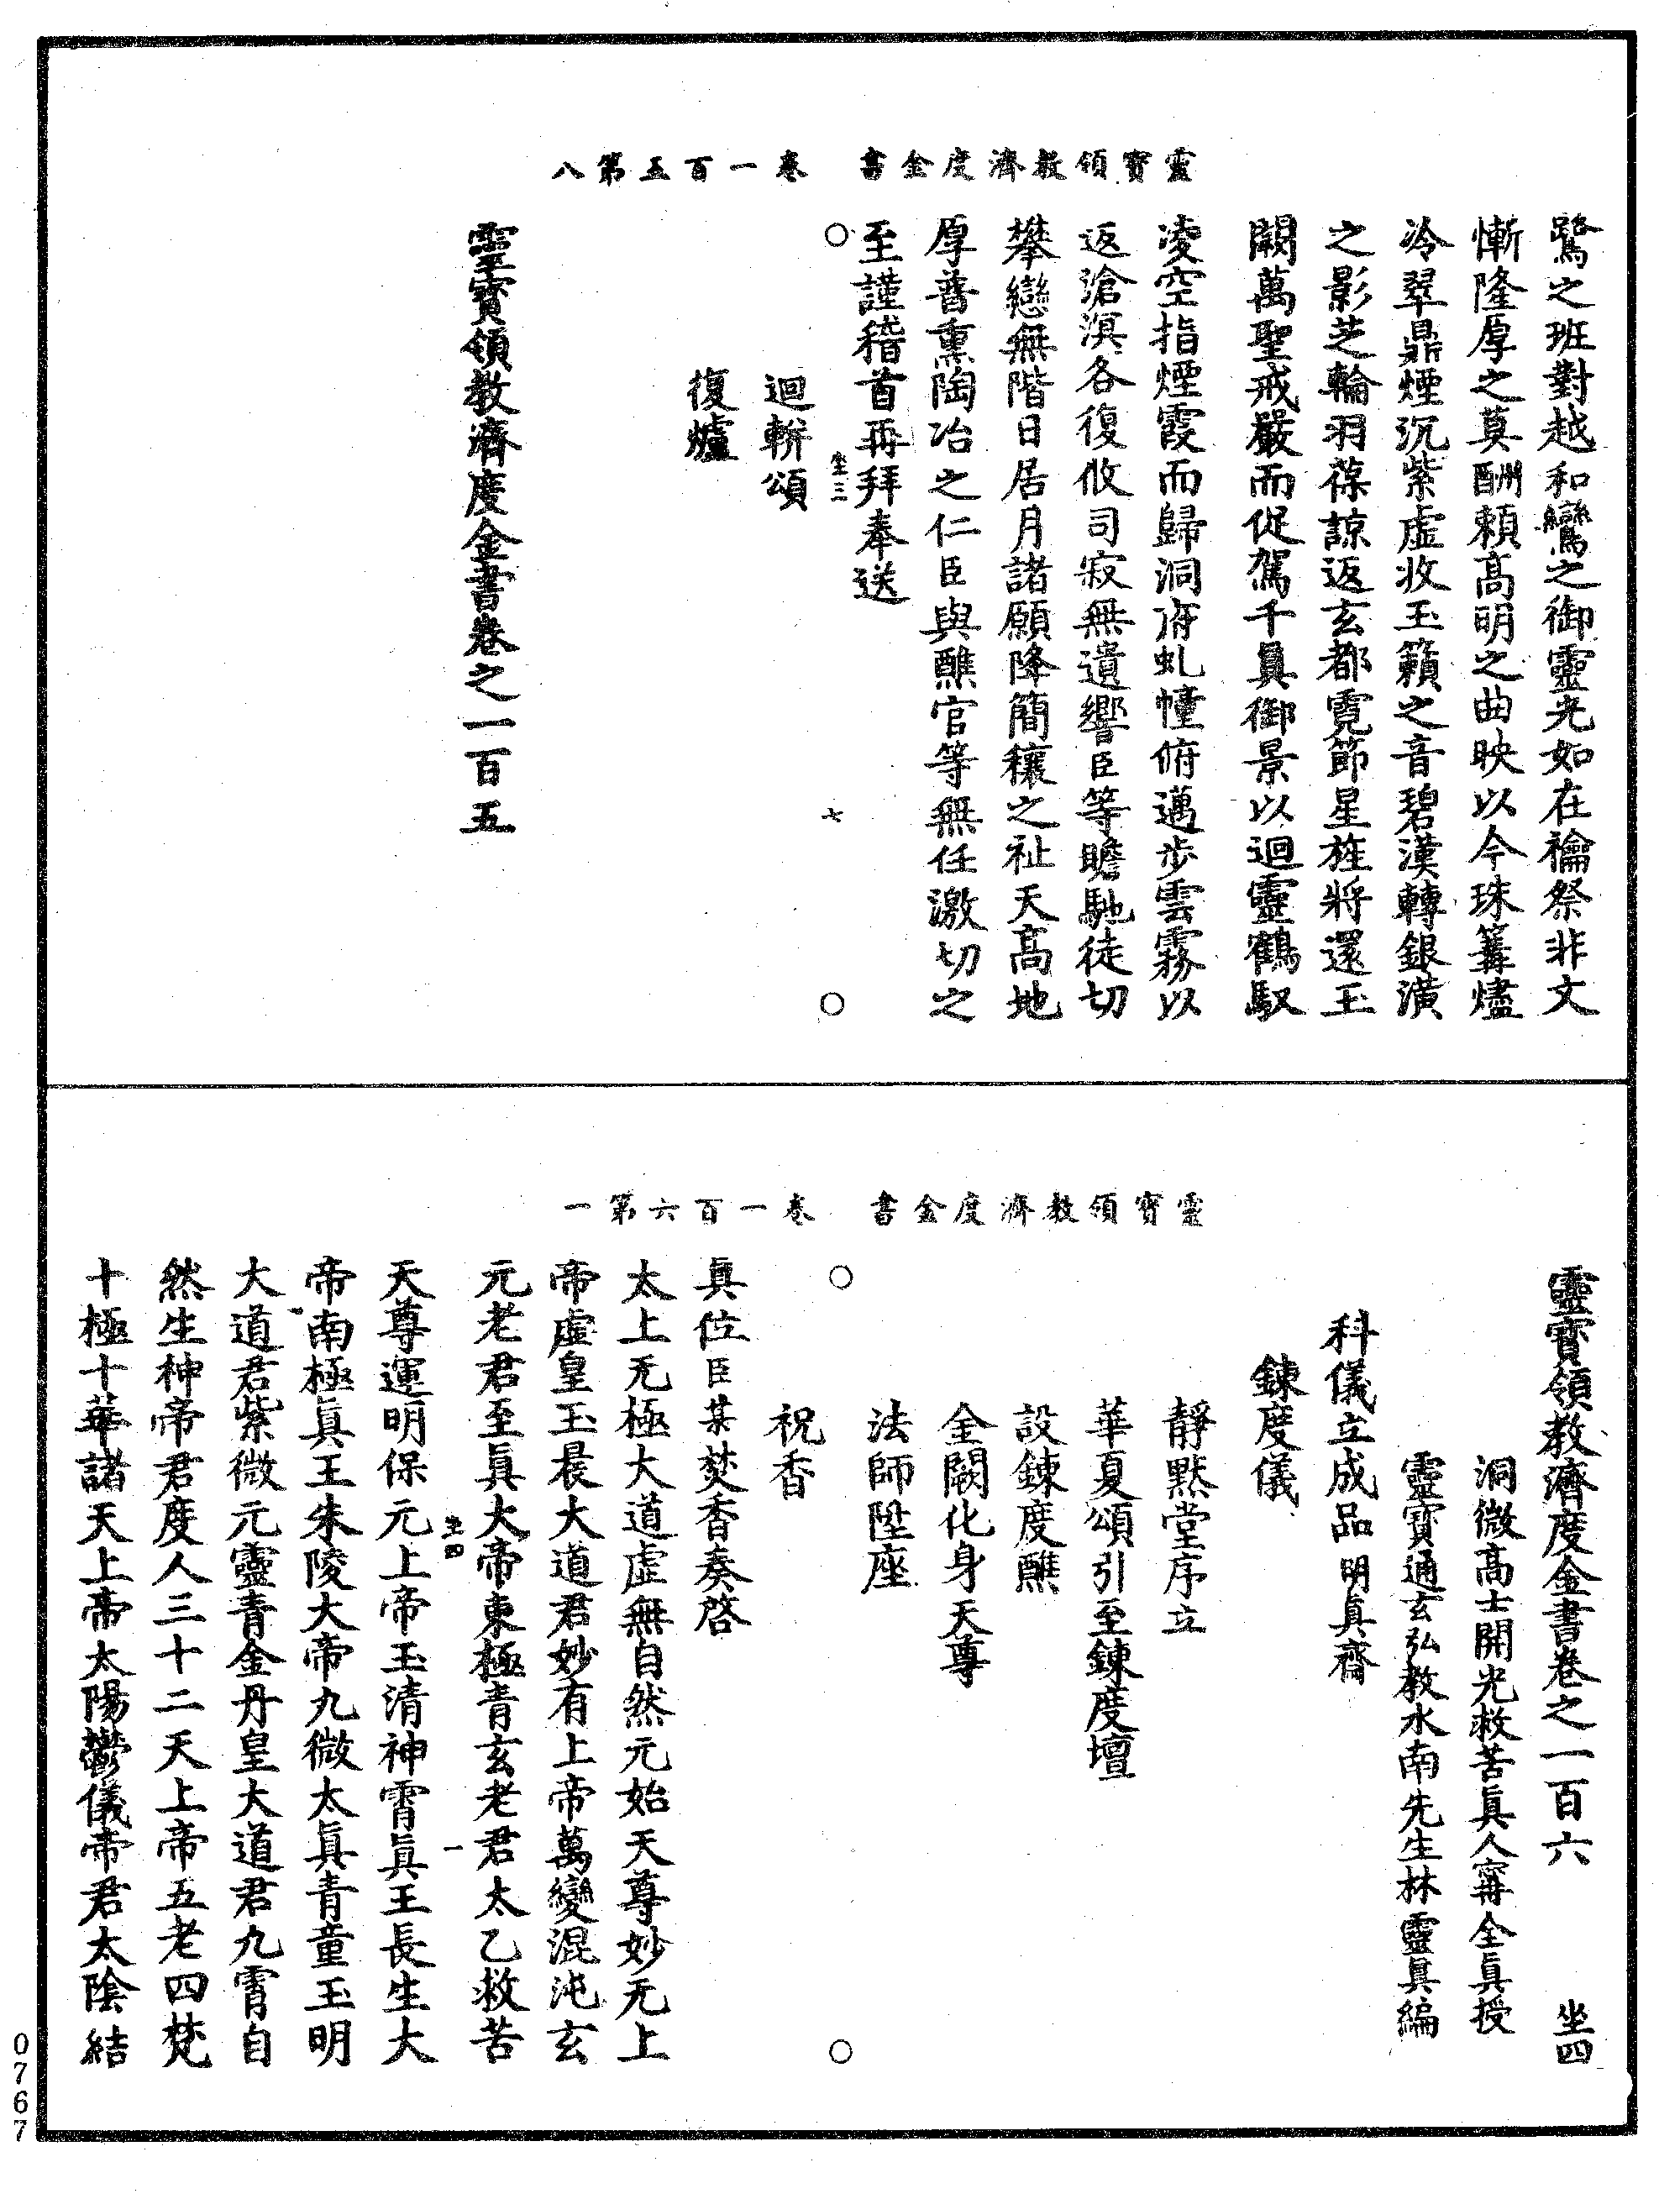 靈寶領教濟度金書　卷一百五第八
鷺之班對越和鸞之御靈光如在禴祭非文
慚隆厚之莫酬賴高明之曲映以今珠篝燼
冷翠鼎煙沉紫虛收玉籟之音碧漢轉銀潢
之影芝輪羽葆諒返玄都霓節星旌將還玉
闕萬聖戒嚴而促駕千眞御景以迴靈鶴馭
凌空指煙霞而歸洞府虬幢俯邁步雲霧以
返滄溟各復攸司寂無遺響臣等瞻馳徒切
攀戀無階日居月諸願降簡穰之祉天高地
厚普熏陶冶之仁臣與醮官等無任激切之
至謹稽首再拜奉送
坐三　七
迴軿頌
復爐
靈寶領教濟度金書卷之一百五
靈寶領教濟度金書　卷一百六第一
靈寶領教濟度金書卷之一百六　坐四
洞微高士開光救苦眞人甯全眞授
靈寶通玄弘教水南先生林靈眞編
科儀立成品明眞齊
鍊度儀
靜默堂序立
華夏頌引至鍊度壇
設鍊度醮
金闕化身天尊
法師陞座
祝香
眞位臣某焚香奏啓
太上无極大道虛無自然元始天尊妙无上
帝虛皇玉晨大道君妙有上帝萬變混沌玄
元老君至眞大帝東極青玄老君太乙救苦
坐四　一
天尊運明保元上帝玉清神霄眞王長生大
帝南極眞王朱陵大帝九微太眞青童玉明
大道君紫微元靈青金丹皇大道君九霄自
然生神帝君度人三十二天上帝五老四梵
十極十華諸天上帝太陽鬱儀帝君太陰結
0767